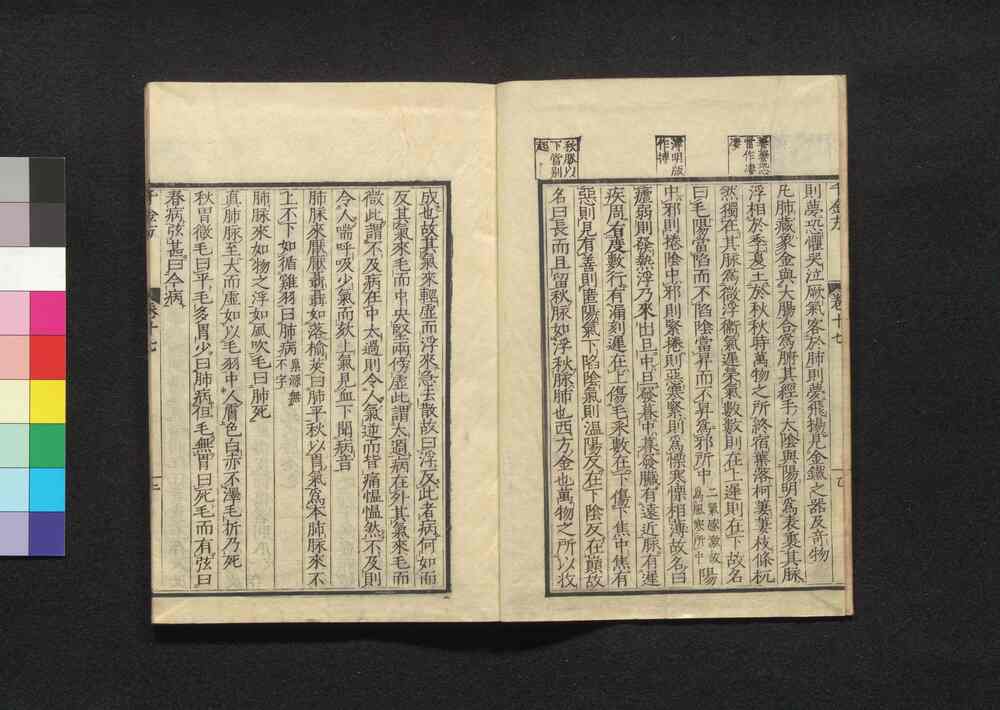 萋萋恐
當作凄
凄
薄明版
作搏
秋脉以
下當別
起
千金方
則夢恐懼哭泣厥氣客於肺則夢飛揚見金鐵之器及奇物
凡肺藏象金與大腸合爲腑其經手太陰與陽明爲表裏其脉
浮相於季夏王於秋秋時萬物之所終宿葉落柯萋萋枝條杌
然獨在其脉爲微浮衞氣遲榮氣數數則在上遲則在下故名
曰毛陽當陷而不陷陰當昇而不昇爲邪所中
二氣感激故
爲風寒所中
陽
中邪則捲陰中邪則緊捲則惡寒緊則爲慄寒慄相薄故名曰
瘧弱則發熱浮乃來出旦中旦發暮中暮發臓有遠近脉有遲
疾周有度數行有漏刻遲在上傷毛采數在下傷下焦中焦有
惡則見有善則匿陽氣下陷陰氣則溫陽反在下陰反在巔故
名曰長而且留秋脉如浮秋脉肺也西方金也萬物之所以收
卷十七
成也故其氣來輕虛而浮來急去散故曰浮反此者病何如而
反其氣來毛而中央堅兩傍虛此謂太過病在外其氣來毛而
微此謂不及病在中太過則令人氣逆而背痛慍慍然不及則
令人喘呼吸少氣而欬上氣見血下聞病音
肺脉來厭厭聶聶如落榆莢曰肺平秋以胃氣爲本肺脉來不
上不下如循雞羽曰肺病
巢源無
不字
肺脉來如物之浮如風吹毛曰肺死
真肺脉至大而虛如以毛羽中人膚色白赤不澤毛折乃死
秋胃微毛曰平毛多胃少曰肺病但毛無胃曰死毛而有弦曰
春病弦甚曰今病
千金方
卷十七
二